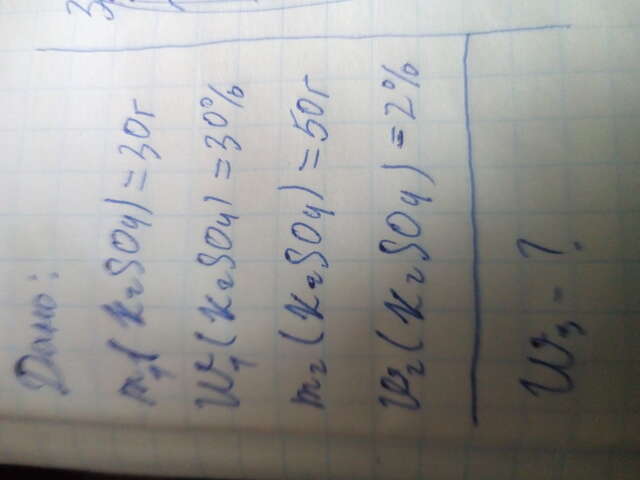 Дано:
m₁(K₂SO₄) = 30г
W₁(K₂SO₄) = 30%
m₂(K₂SO₄) = 50г
W₂(K₂SO₄) = 2%
W₃ - ?